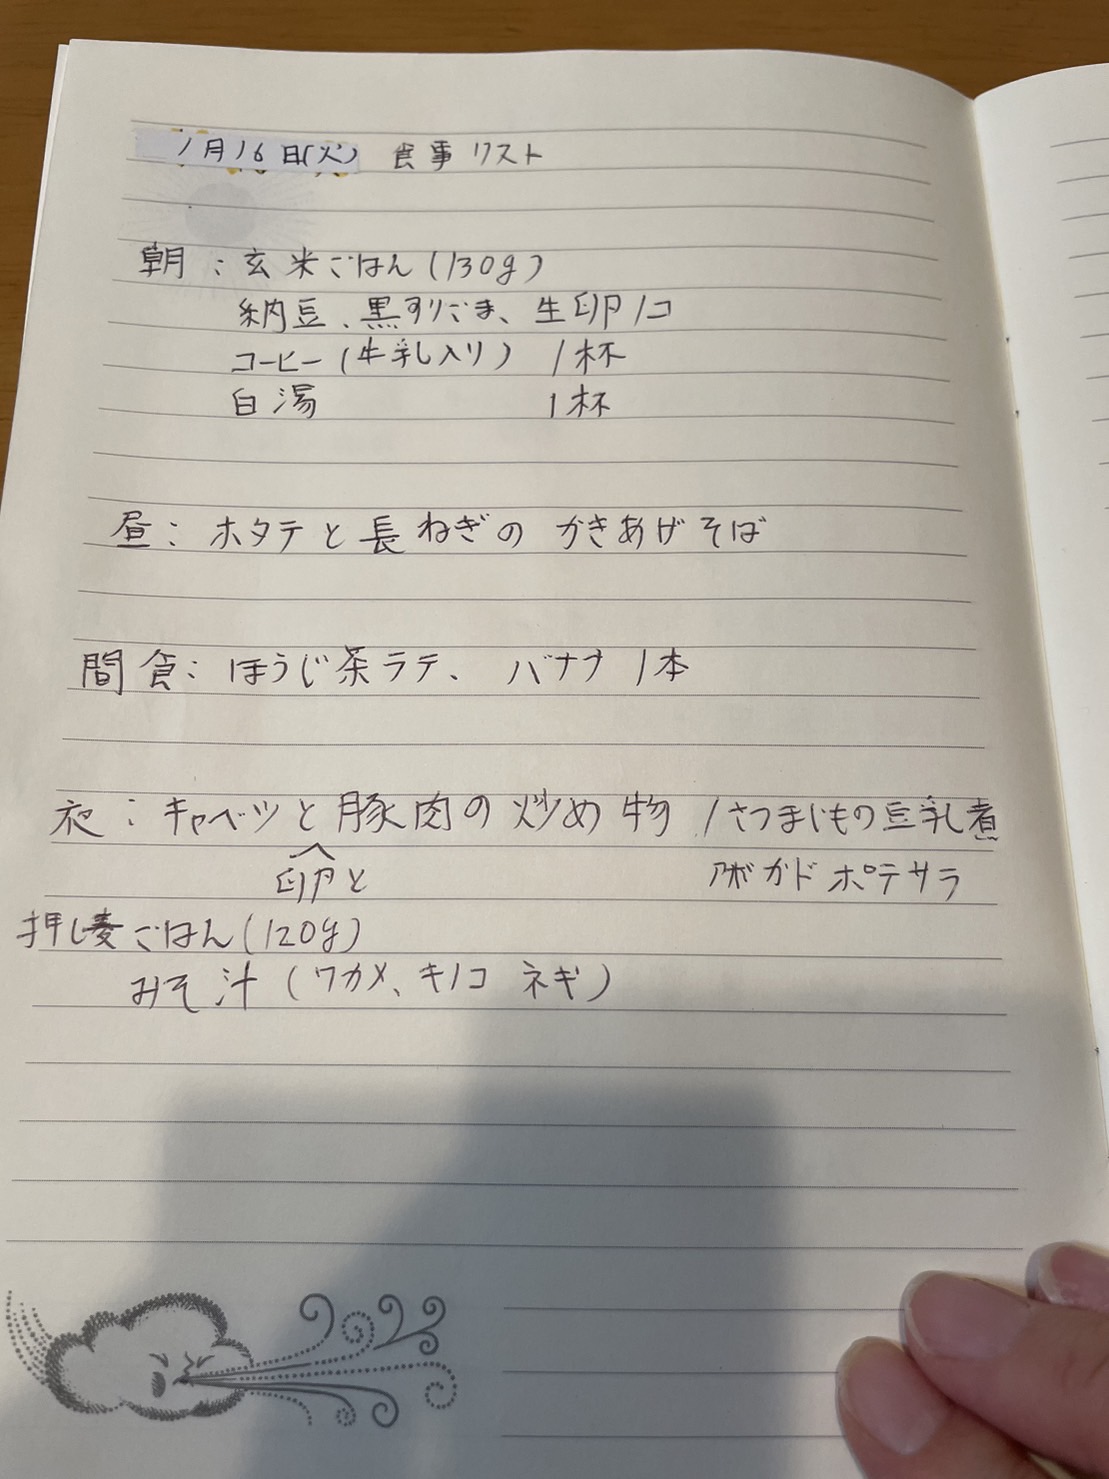 1月16日(火) 食事リスト
朝：玄米ごはん(130g)
納豆、黒すりごま、生卵1コ
コーヒー(牛乳入り) 1杯
白湯 1杯
昼：ホタテと長ねぎの かきあげそば
間食：ほうじ茶ラテ、バナナ1本
夜：キャベツと豚肉の炒め物 / さつまいもの豆乳煮
卵と アボカドポテサラ
押し麦ごはん(120g)
みそ汁(ワカメ、キノコ ネギ)